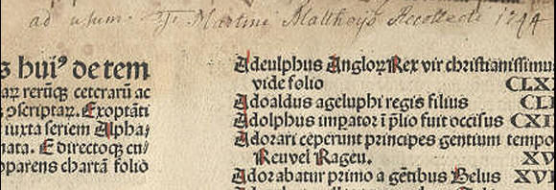 ad usum. Fr. Martini Matthoys Recollecti 1744
s huiꝰ de tem
aꝝ rerũqꝫ ceterarũ ac
ꝯscriptaꝝ. Exoptãti
iuxta seriem Alpha/
nata. E directoqꝫ eñ/
pparens chartã folio
Adeulphus Angloꝝ Rex vir christianissimu
vide folio CLX
Adoaldus agelulphi regis filius CLI
Adolphus impator ĩ plio fuit occisus CXI
Adorari ceperunt principes gentium tempo
Reu vel Ragau. XV
Adorabatur primo a gẽtibus Belus XVI